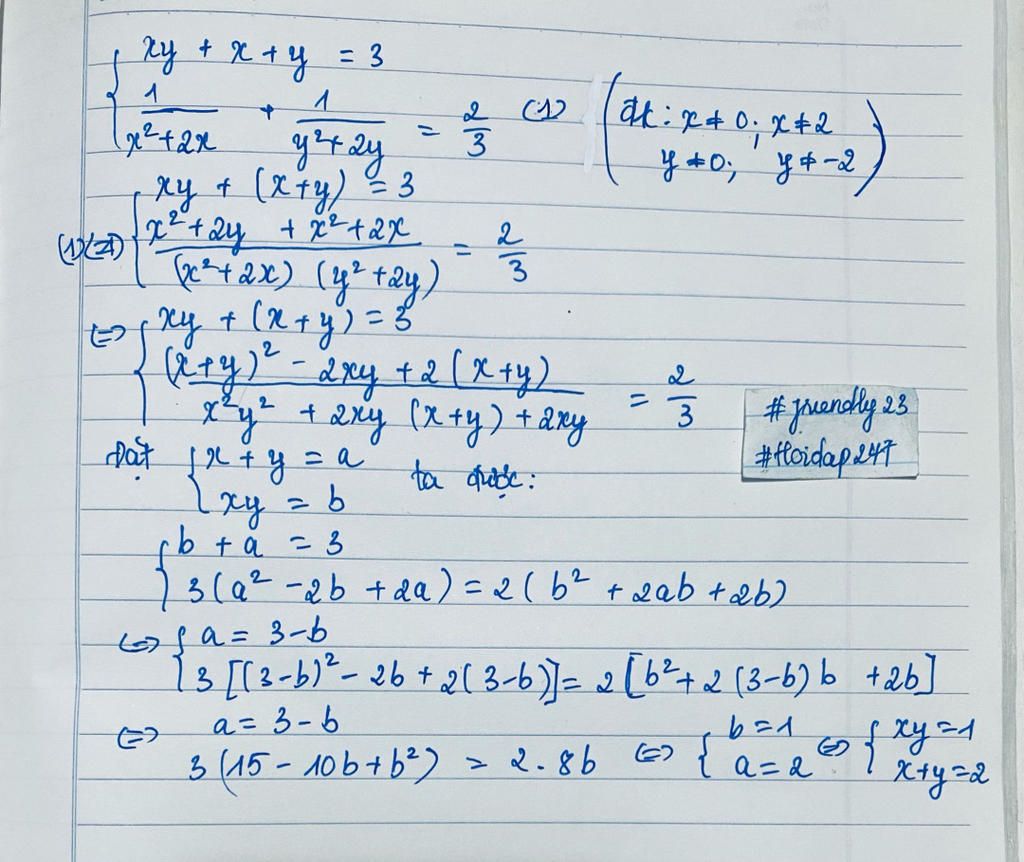 xy + x + y = 3
1/(x²+2x) + 1/(y²+2y) = 2/3 (1) (đk: x ≠ 0; x ≠ 2
y ≠ 0; y ≠ -2)
xy + (x+y) = 3
(1)(=) (x²+2y + x²+2x)/((x²+2x) (y²+2y)) = 2/3
(=) xy + (x+y) = 3
((x+y)² - 2xy + 2(x+y))/(x²y² + 2xy (x+y) + 2xy) = 2/3
#friendly23
#Hoidap247
Đặt {x + y = a ta được:
xy = b
{b + a = 3
3(a² - 2b + 2a) = 2(b² + 2ab + 2b)
(=) {a = 3-b
3[(3-b)² - 2b + 2(3-b)] = 2[b² + 2(3-b)b + 2b]
(=) a = 3-b
3(15 - 10b + b²) = 2.8b (=) {b=1 (=) {xy=1
a=2 x+y=2